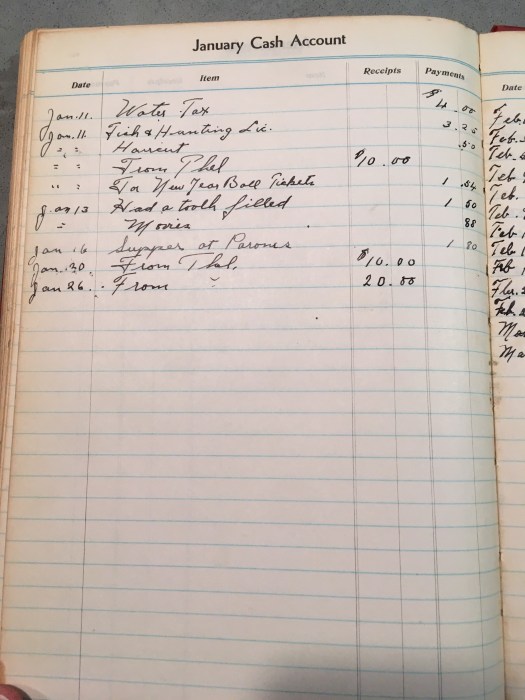 January Cash Account
Date Item Receipts Payments
Jan. 11. Water Tax $4.00
Jan. 11. Fish & Hunting Lic. 3.25
" " Haircut .50
" " From Phil $10.00
" " For New Year Ball Tickets 1.54
Jan 13 Had a tooth filled 1 50
" Movies 88
Jan. 16 Supper at 1 80
Jan. 30. From Phl. $10.00
Jan 26. From " 20.00
Date
Feb.
Feb.
Feb.
Feb
Feb.
Feb.
Feb
Feb
Feb
Feb.
Feb.